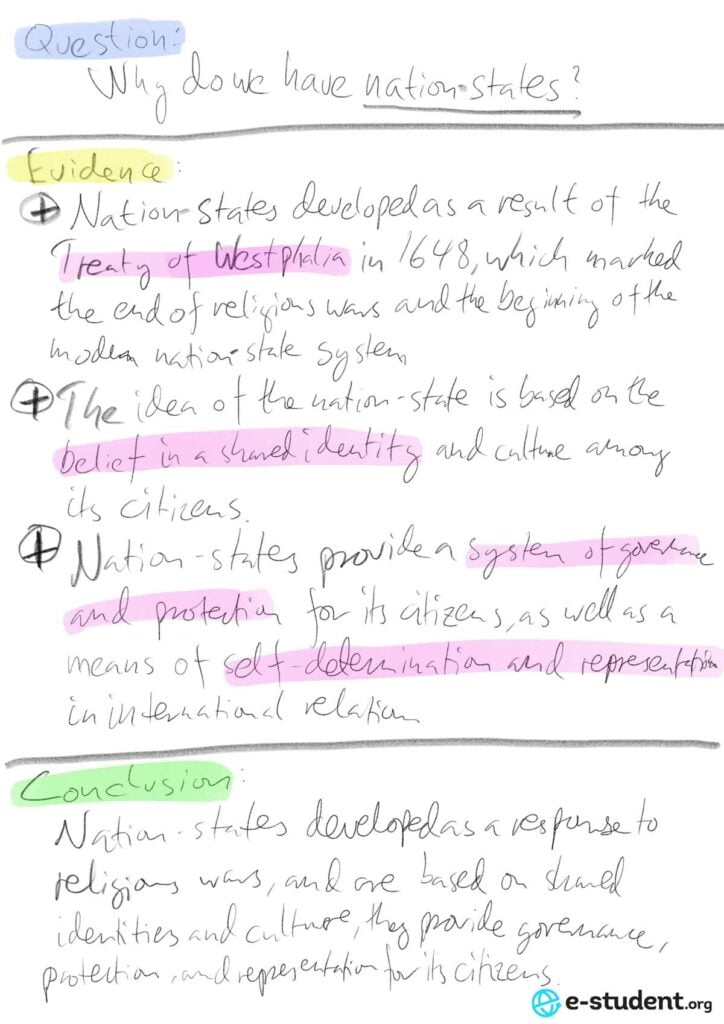 Question:
Why do we have nation-states?
Evidence:
+ Nation-states developed as a result of the
Treaty of Westphalia in 1648, which marked
the end of religious wars and the beginning of the
modern nation-state system
+ The idea of the nation-state is based on the
belief in a shared identity and culture among
its citizens.
+ Nation-states provide a system of governance
and protection for its citizens, as well as a
means of self-determination and representation
in international relation
Conclusion:
Nation-states developed as a response to
religious wars, and are based on shared
identities and culture, they provide governance,
protection, and representation for its citizens.
e-student.org